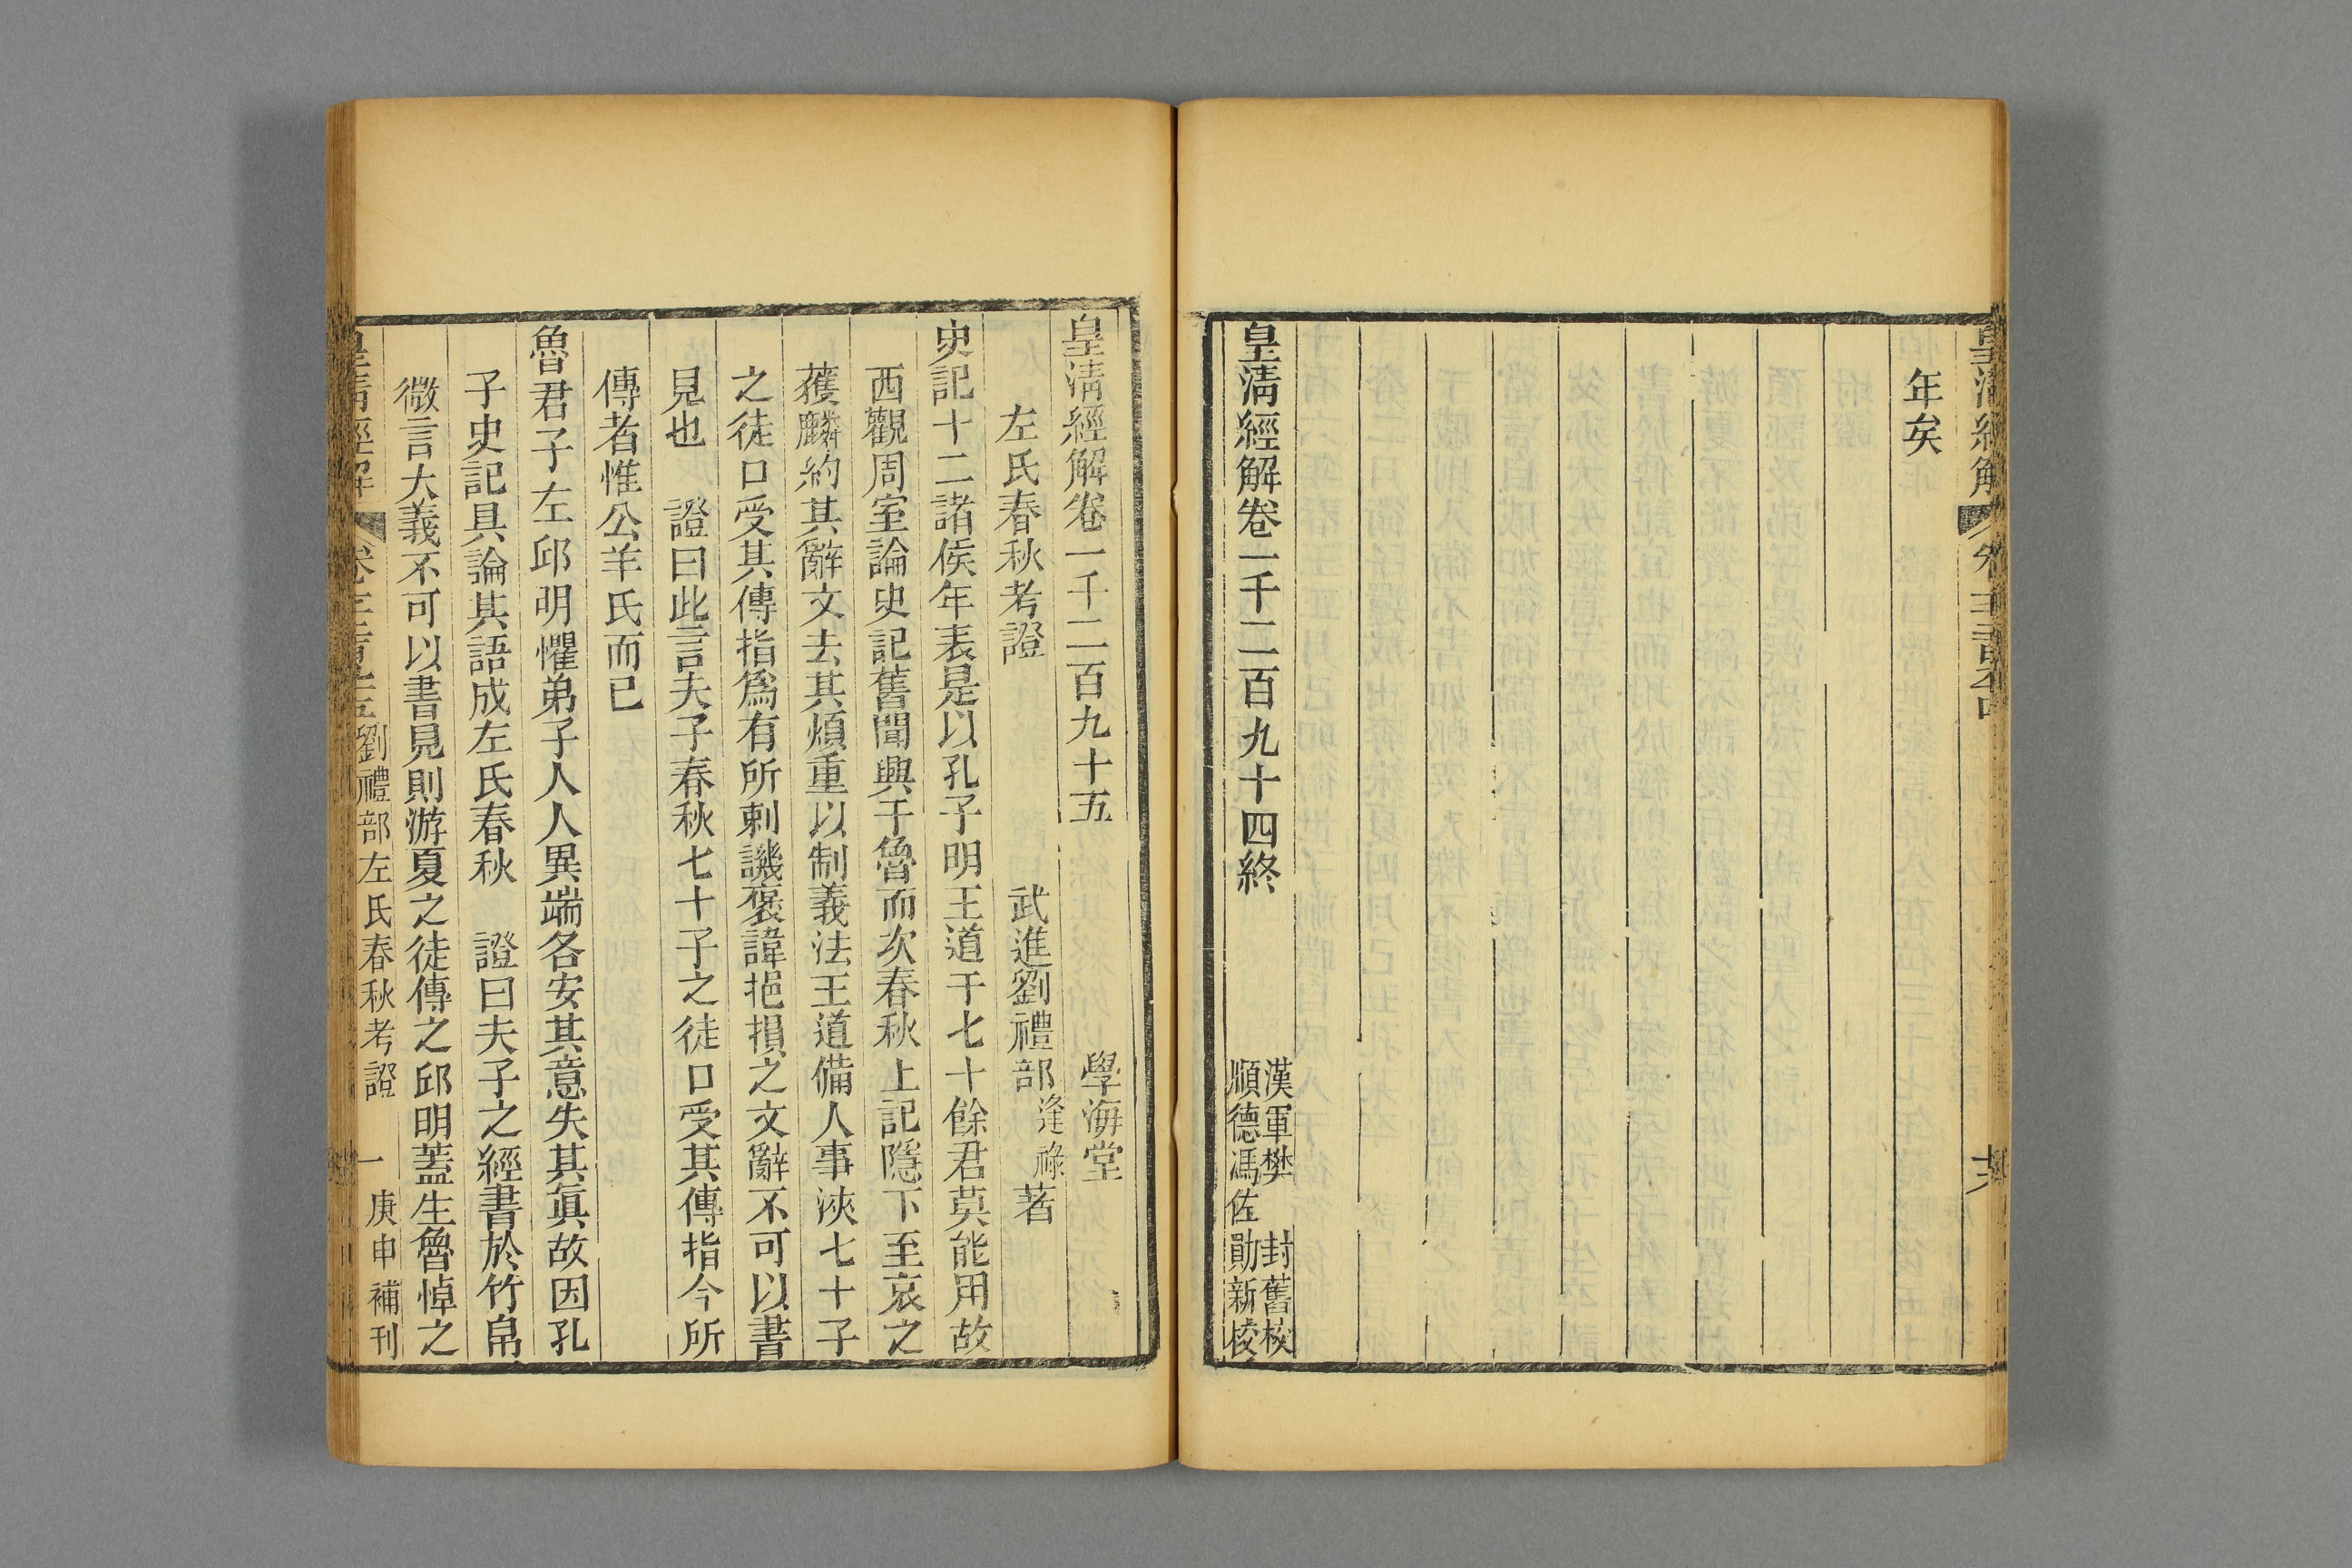 年矣
皇清經解卷一千二百九十四終
漢軍樊封舊校
順德馮佐勛新校
皇清經解卷一千二百九十五 學海堂
左氏春秋考證 武進劉禮部逢祿著
史記十二諸侯年表是以孔子明王道干七十餘君莫能用故
西觀周室論史記舊聞興于魯而次春秋上記隱下至哀之
獲麟約其辭文去其煩重以制義法王道備人事浹七十子
之徒口受其傳指爲有所刺譏褒諱挹損之文辭不可以書
見也 證曰此言夫子春秋七十子之徒口受其傳指今所
傳者惟公羊氏而已
魯君子左邱明懼弟子人人異端各安其意失其眞故因孔
子史記具論其語成左氏春秋 證曰夫子之經書於竹帛
微言大義不可以書見則游夏之徒傳之邱明蓋生魯悼之
皇清經解 劉禮部左氏春秋考證 一 庚申補刊